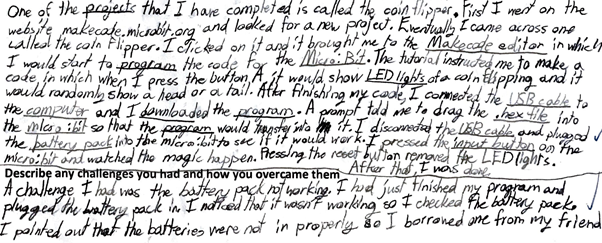 One of the projects that I have completed is called the coin flipper. First I went on the
website makecode.microbit.org and looked for a new project. Eventually I came across one
called the coin Flipper. I clicked on it and it brought me to the Makecode editor in which
I would start to program the code for the Micro:Bit. The tutorial instructed me to make a
code in which when I press the button A it would show LED lights of a coin flipping and it
would randomly show a head or a tail. After finishing my code, I connected the USB cable to
the computer and I downloaded the program. A prompt told me to drag the .hex file into
the micro:bit so that the program would transfer into it. I disconnected the USB cable and plugged
the battery pack into the micro:bit to see if it would work. I pressed the input button on the
micro:bit and watched the magic happen. Pressing the reset button removed the LED lights.
After that, I was done.
Describe any challenges you had and how you overcame them
A challenge I had was the battery pack not working. I had just finished my program and
plugged the battery pack in. I noticed that it wasn't working so I checked the battery pack.
I pointed out that the batteries were not in properly so I borrowed one from my friend